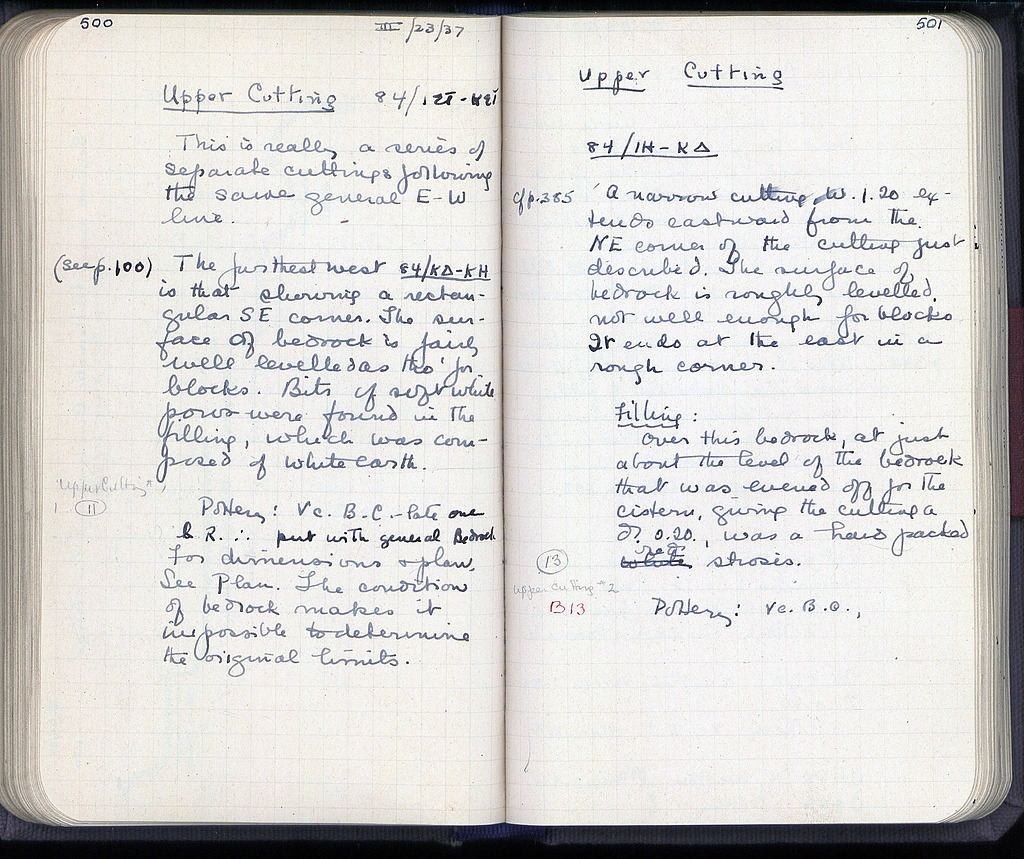 500
III/23/37
Upper Cutting 84/
This is really a series of
separate cuttings following
the same general E-W
line.
(see p. 100) The furthest west 84/ΚΔ-ΚΗ
is that showing a rectan-
gular SE corner. The sur-
face of bedrock is fairly
well levelled as tho' for
blocks. Bits of soft white
poros were found in the
filling, which was com-
posed of white earth.
"Upper Cutting"
11
Pottery: Vc. B.C. - late one
B.R. ∴ put with general Bedrock
For dimensions & plan,
See Plan. The condition
of bedrock makes it
impossible to determine
the original limits.
501
Upper Cutting
84/ΙΗ-ΚΔ
cf p. 385 A narrow cutting, W. 1.20 ex-
tends eastward from the
NE corner of the cutting just
described. The surface of
bedrock is roughly levelled,
not well enough for blocks
It ends at the east in a
rough corner.
Filling:
Over this bedrock, at just
about the level of the bedrock
that was evened off for the
cistern, giving the cutting a
d. 0.20, was a hard packed
red
white strosis.
13
Upper Cutting #2
B13
Pottery: Vc. B.C.,